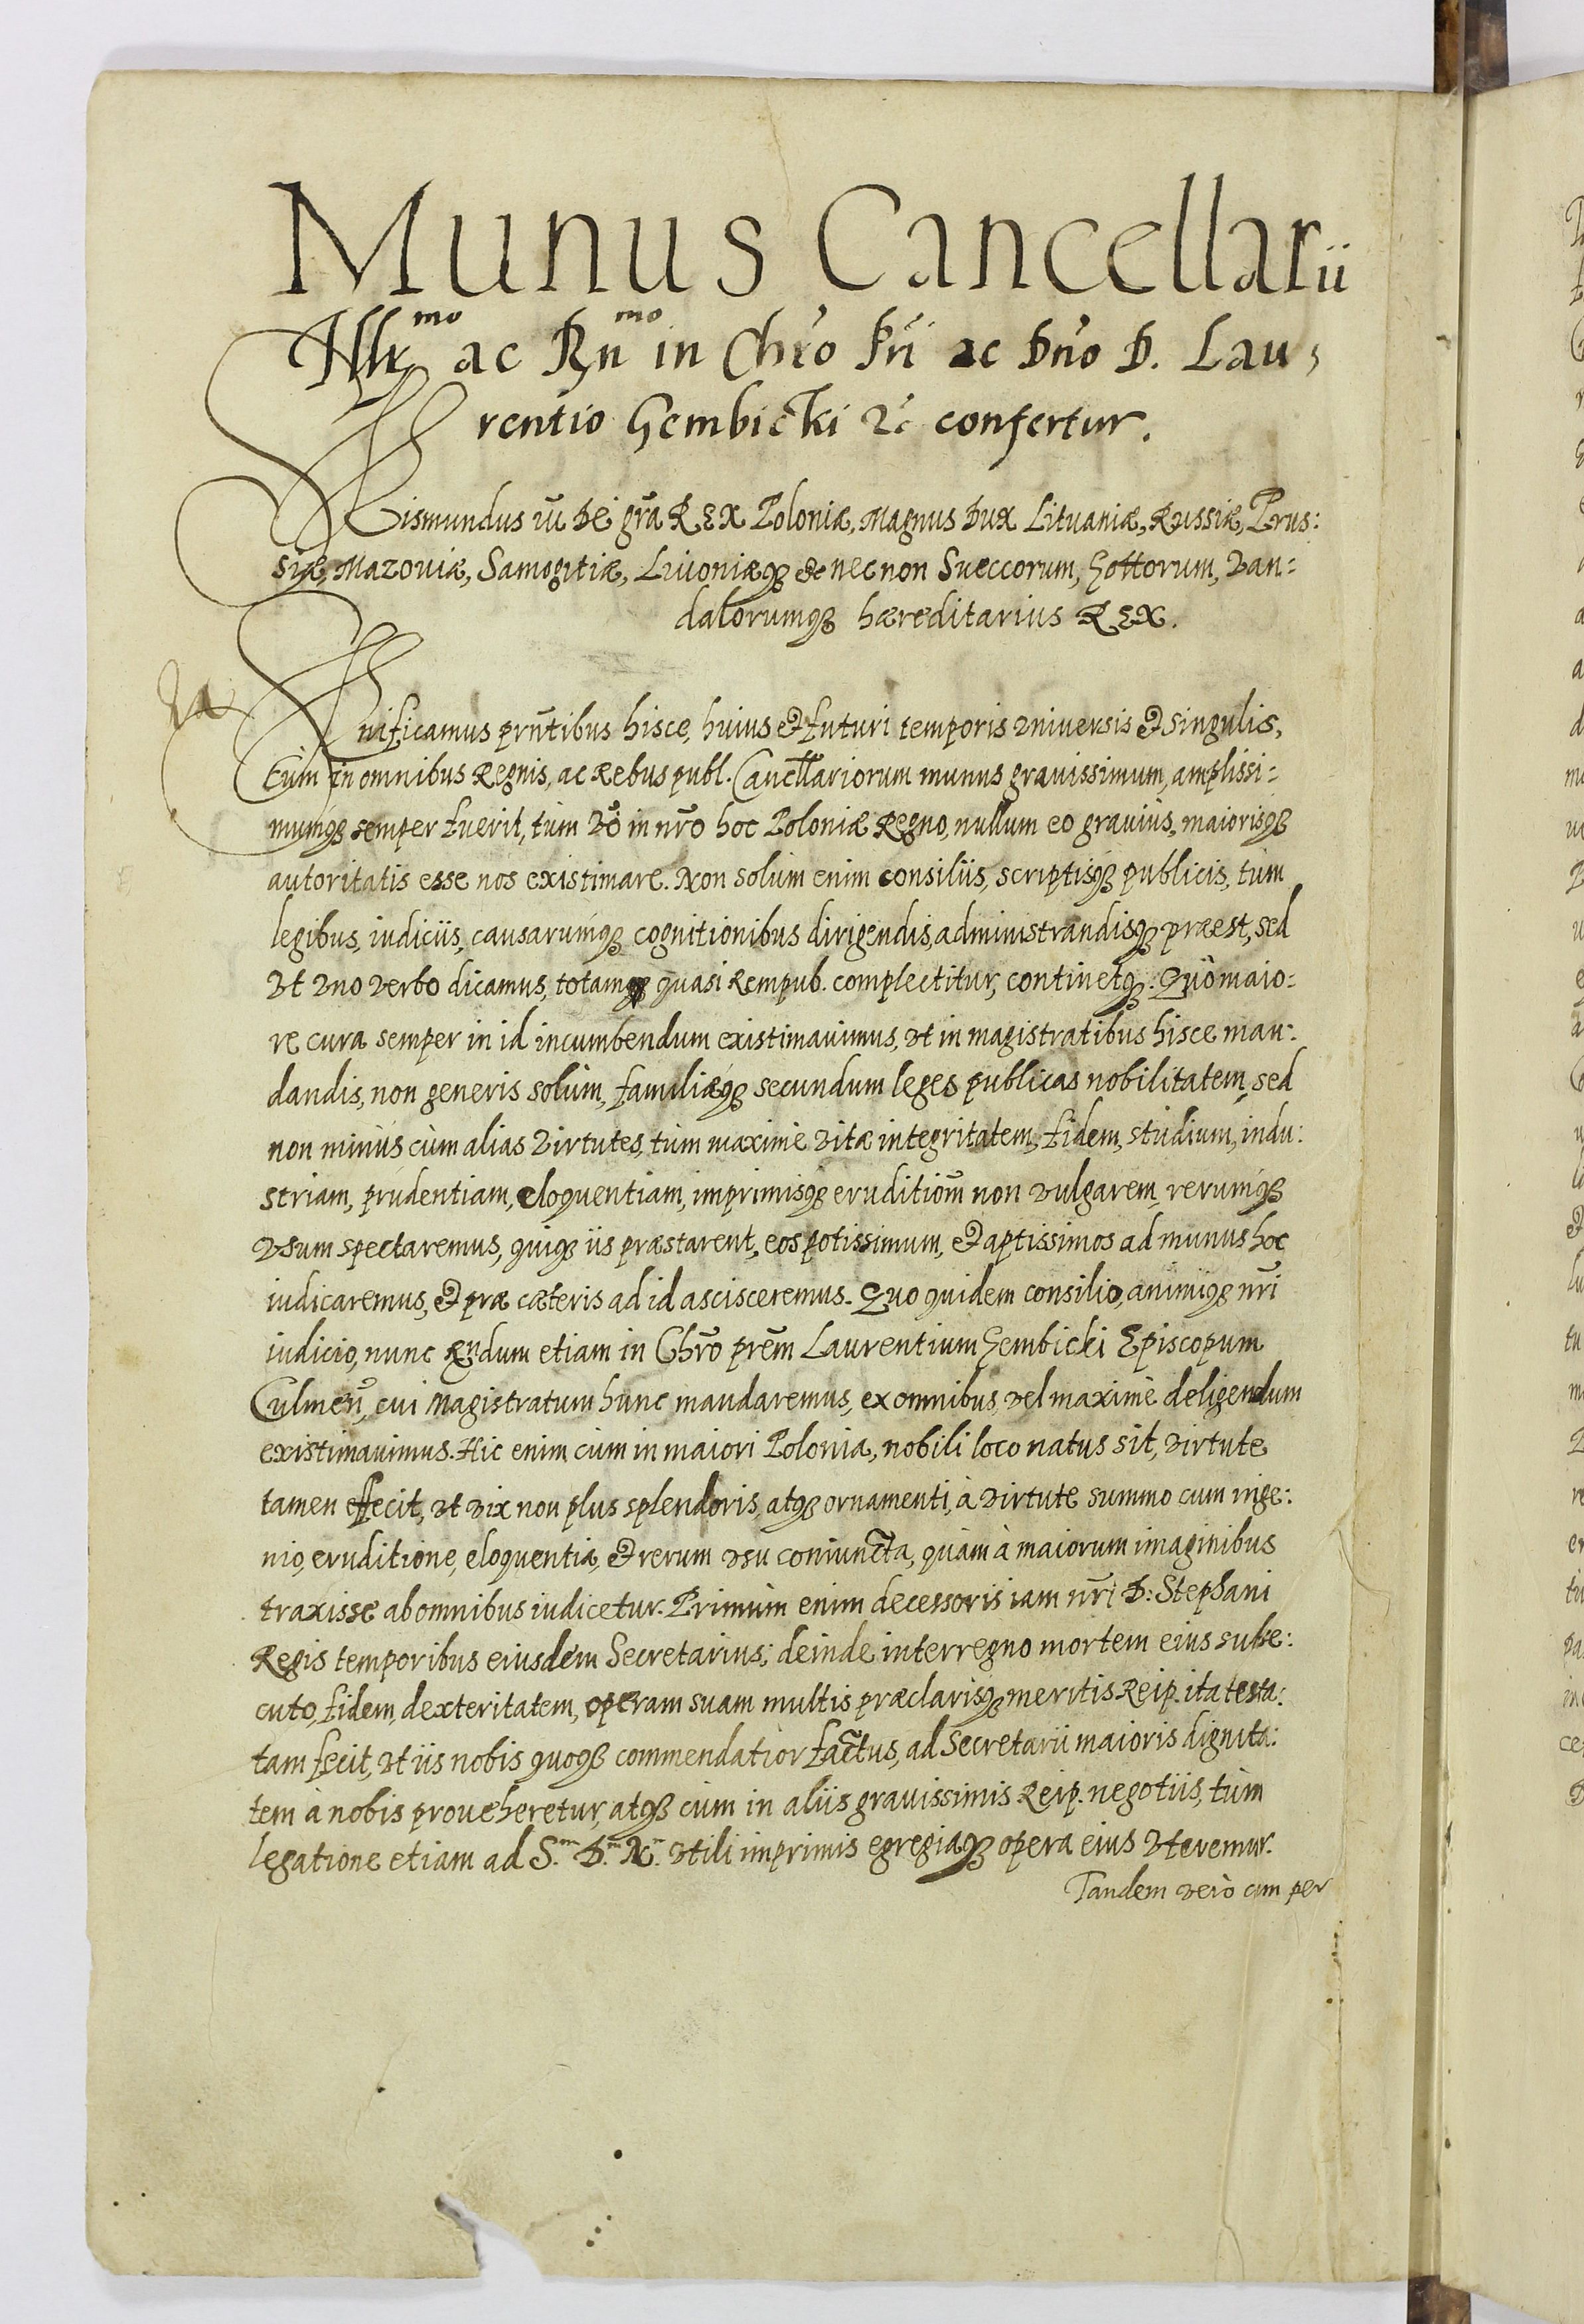 Munus Cancellarii
Illr.mo ac Rn.mo in Chr̄o Pr̄i ac Dn̄o D. Lau,
rentio Gembicki &c confertur.
Sigismundus iii Dei gr̄a REX Poloniæ, Magnus Dux Lituaniæ, Russiæ, Prus:
siæ, Mazouiæ, Samogitiæ, Liuoniæq3 &c necnon Sueccorum, Gottorum, Van:
dalorumq3 hæreditarius REX.
Significamus prn̄tibus hisce, huius et futuri temporis vniuersis et singulis,
Cùm in omnibus Regnis, ac Rebus publ. Cancellariorum munus grauissimum, amplissi:
mumq3 semper fuerit, tùm vō in nr̄o hoc Poloniæ Regno, nullum eo grauius, maiorisq3
autoritatis esse nos existimare. Non solùm enim consiliis, scriptisq3 publicis, tùm
legibus, iudiciis, causarumq3 cognitionibus dirigendis, administrandisq3 præest, sed
vt vno verbo dicamus, totamq3 quasi Rempub. complectitur, continetq3. Quò maio:
re cura semper in id incumbendum existimauimus, vt in magistratibus hisce man:
dandis, non generis solùm, familiæq3 secundum leges publicas nobilitatem, sed
non minùs cùm alias virtutes, tùm maximè vitæ integritatem, fidem, studium, indu:
striam, prudentiam, eloquentiam, imprimisq3 eruditiōm non vulgarem, rerumq3
vsum spectaremus, quiq3 iis præstarent, eos potissimum, et aptissimos ad munus hoc
iudicaremus, et præ cæteris ad id ascisceremus. Quo quidem consilio, animiq3 nr̄i
iudicio, nunc Rn̄dum etiam in Chr̄o prēm Laurentium Gembicki Episcopum
Culmeñ, cui Magistratum hunc mandaremus, ex omnibus vel maximè deligendum
existimauimus. Hic enim cùm in maiori Polonia, nobili loco natus sit, virtute
tamen effecit, vt vix non plus splendoris, atq3 ornamenti, à virtute summo cum inge:
nio, eruditione, eloquentia, et rerum vsu coniuncta, quàm à maiorum imaginibus
traxisse ab omnibus iudicetur. Primùm enim decessoris iam nr̄i D: Stephani
Regis temporibus eiusdem Secretarius; deinde interregno mortem eius subse:
cuto, fidem, dexteritatem, operam suam multis præclarisq3 meritis Reip. ita testa:
tam fecit, vt iis nobis quoq3 commendatior factus, ad Secretarii maioris dignita:
tem à nobis proueheretur, atq3 cùm in aliis grauissimis Reip. negotiis, tùm
legatione etiam ad S.m D.m N.m vtili imprimis egregiaq3 opera eius vteremur.
Tandem verò cum per